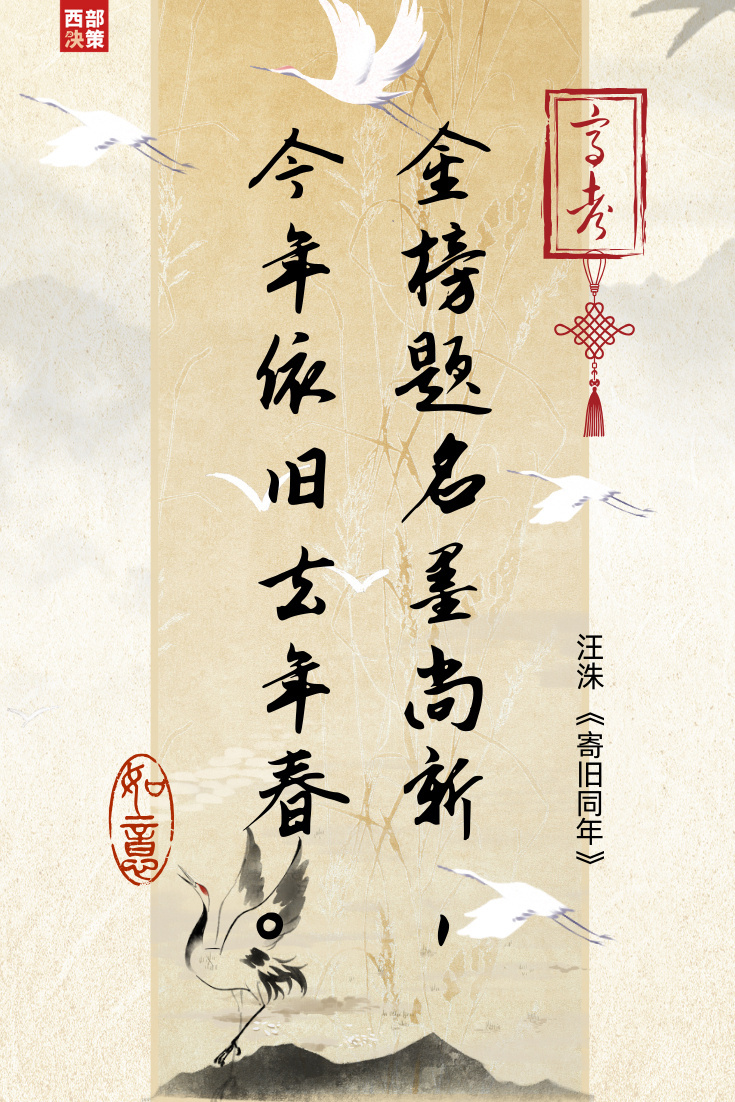 西部
决策
高考
金榜题名墨尚新，
今年依旧去年春。
汪洙《寄旧同年》
如意